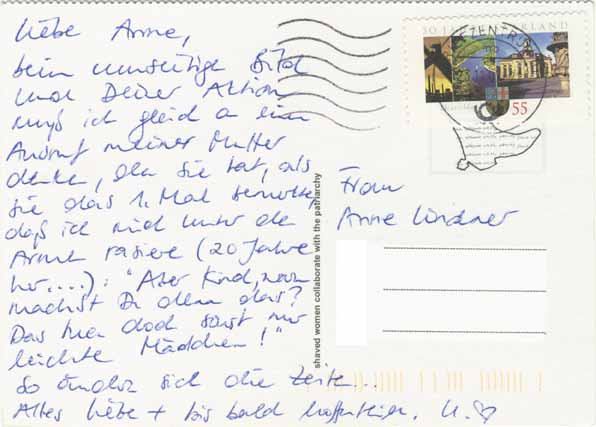 Liebe Anne,
beim umseitigen Bild
und Deiner Aktion
muß ich gleich an einen
Ausruf meiner Mutter
denken, den sie tat, als
sie das 1. Mal bemerkte,
daß ich mich unter den
Armen rasiere (20 Jahre
her....): "Aber Kind, warum
machst Du denn das?
Das tun doch sonst nur
leichte Mädchen!"
So ändern sich die Zeiten..
Alles Liebe + bis bald hoffentlich. U.
shaved women collaborate with the patriarchy
50 JA RLAND
EZENTR
55
Frau
Anne Lindner